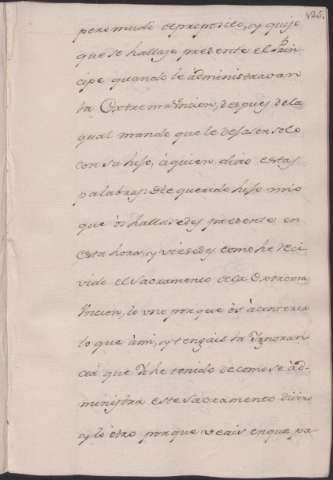 425.
pero mudò de proposito, y quiso
que se hallase presente el Prin
cipe quando le administravan
la Extrema Uncion, despues de la
qual mandò que le dejasen solo
con su hijo, à quien dixo estas
palabras: He querido hijo mio
que òs hallasedes presente en
esta hora, y viesedes como he reci
vido el Sacramento de la Extrema
Uncion, lo uno porque òs acontezca
lo que à mi, y tengais la Ygnoran
cia que Yo he tenido de como se àd-
ministra este Sacramento divino
y lo otro porque veais en que pa-